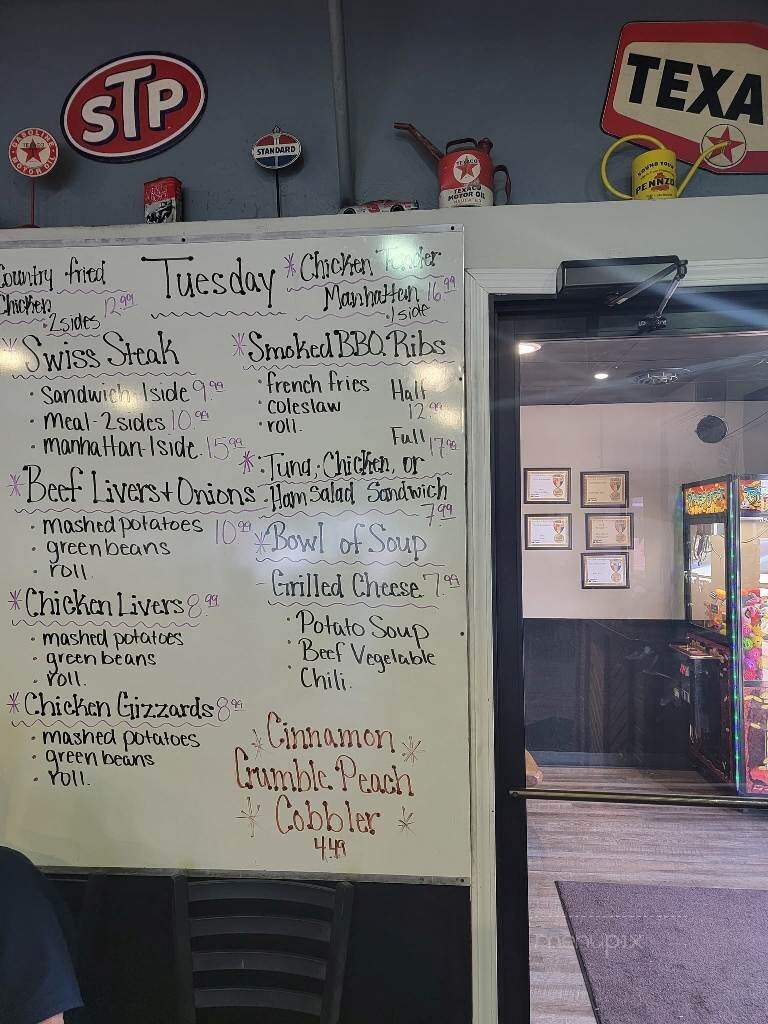 STP
TEXA
GASOLINE
TEXACO
MOTOR OIL
STANDARD
TEXACO
MOTOR OIL
PENNZO
Country fried
Chicken 12.99
• 2 sides
Tuesday
* Chicken Tender
Manhattan 16.99
• 1 side
* Swiss Steak
• Sandwich 1 side 9.99
• Meal - 2 sides 10.99
• manhattan 1 side 15.99
* Smoked BBQ Ribs
• french fries
• coleslaw
• roll.
Half
12.99
Full 17.99
* Tuna, Chicken, or
Ham Salad Sandwich
7.99
* Beef Livers + Onions
• mashed potatoes 10.99
• green beans
• roll.
* Bowl of Soup
- Grilled Cheese 7.99
• Potato Soup
• Beef Vegetable
• Chili.
* Chicken Livers 8.99
• mashed potatoes
• green beans
• roll.
* Chicken Gizzards 8.99
• mashed potatoes
• green beans
• roll.
* Cinnamon *
Crumble Peach
* Cobbler *
4.49
menupix